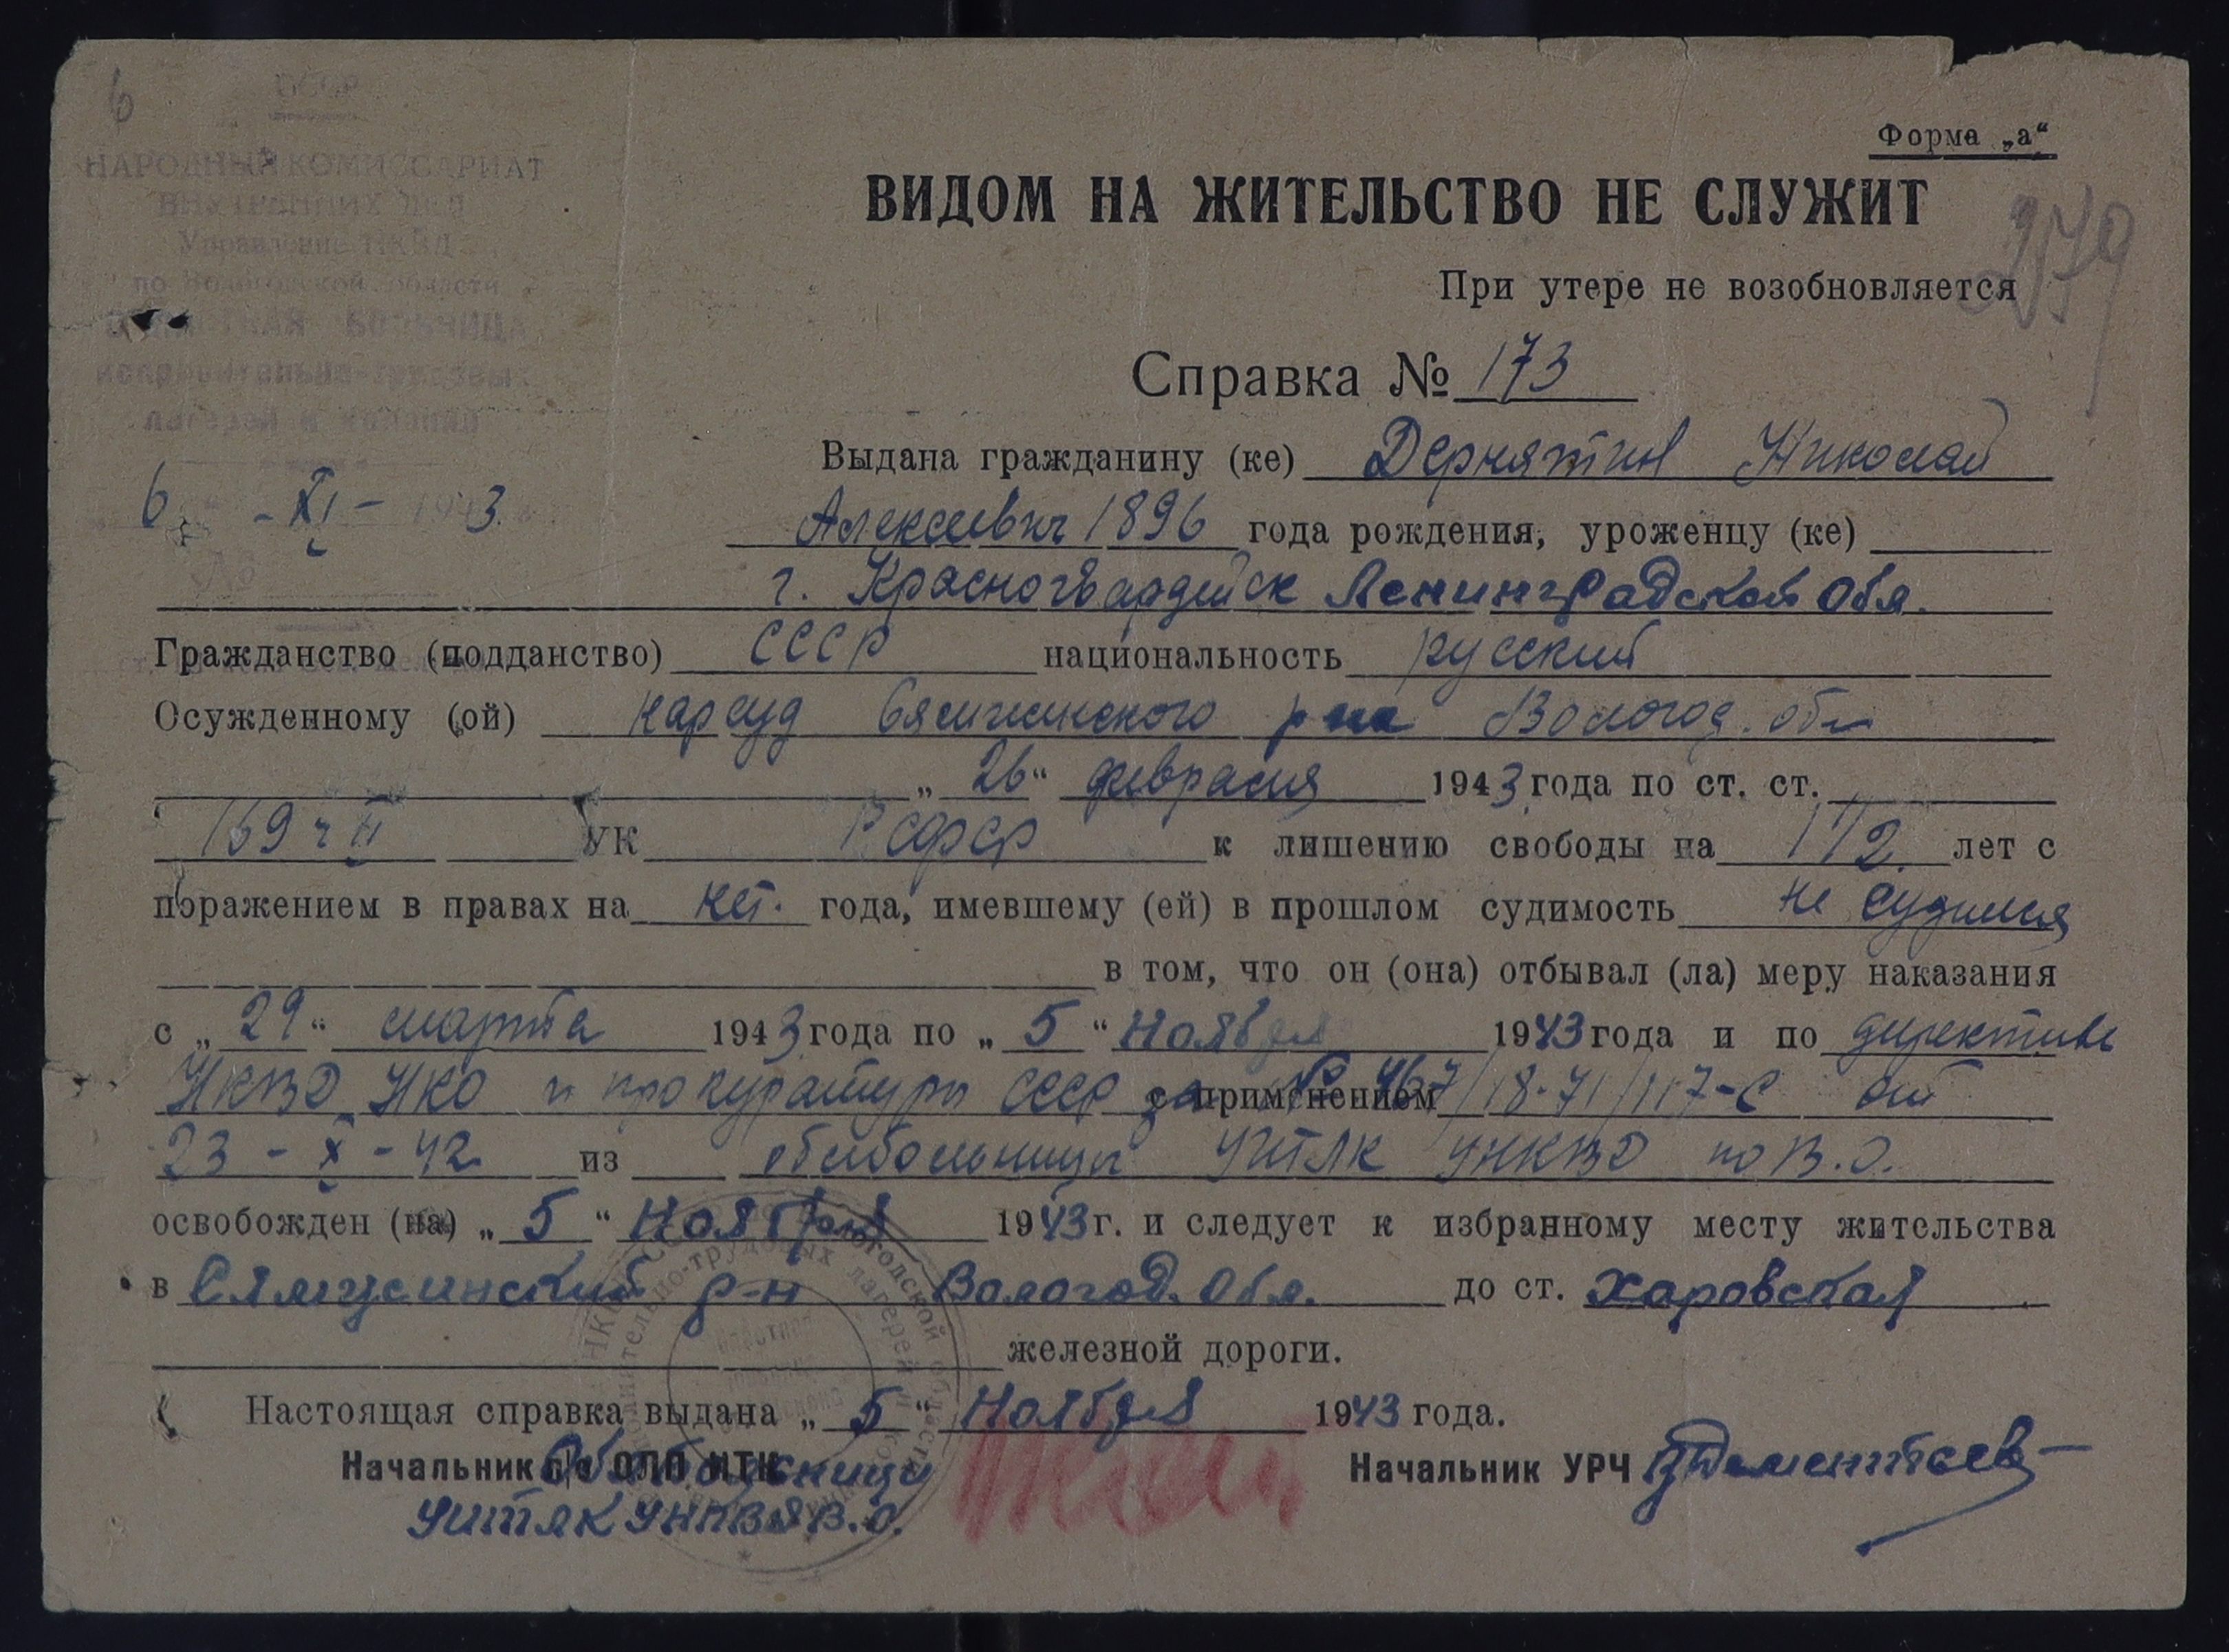 6
СССР
НАРОДНЫЙ КОМИССАРИАТ
ВНУТРЕННИХ ДЕЛ
Управление НКВД
по Вологодской области
БОЛЬНИЦА
исправительно-трудовых
лагерей и колоний
6 - XI - 1943.
№
Форма „а“
ВИДОМ НА ЖИТЕЛЬСТВО НЕ СЛУЖИТ
279
При утере не возобновляется
Справка № 173
Выдана гражданину (ке) Дернятин Николай
Алексеевич 1896 года рождения, уроженцу (ке)
г. Красногвардейск Ленинградской Обл.
Гражданство (подданство) СССР национальность русский
Осужденному (ой) нарсуд Сямженского р-на Вологод. обл
„ 26 “ февраля 1943 года по ст. ст.
169 ч II УК РСФСР к лишению свободы на 1 1/2 лет с
поражением в правах на нет. года, имевшему (ей) в прошлом судимость не судился
в том, что он (она) отбывал (ла) меру наказания
с „ 29 “ марта 1943 года по „ 5 “ Ноября 1943 года и по директиве
НКВД НКО и прокуратуры СССР за с применением № 467/18-71/117-с от
23 - X - 42 из облбольницы УИТЛК УНКВД по В.О.
освобожден (на) „ 5 “ Ноября 1943 г. и следует к избранному месту жительства
в Сямженский р-н Вологод. Обл. до ст. Харовская
железной дороги.
Настоящая справка выдана „ 5 “ Ноября 1943 года.
Начальник ОЛП ИТК Облбольницы Начальник УРЧ Дементьев
УИТЛК УНКВД В.О.